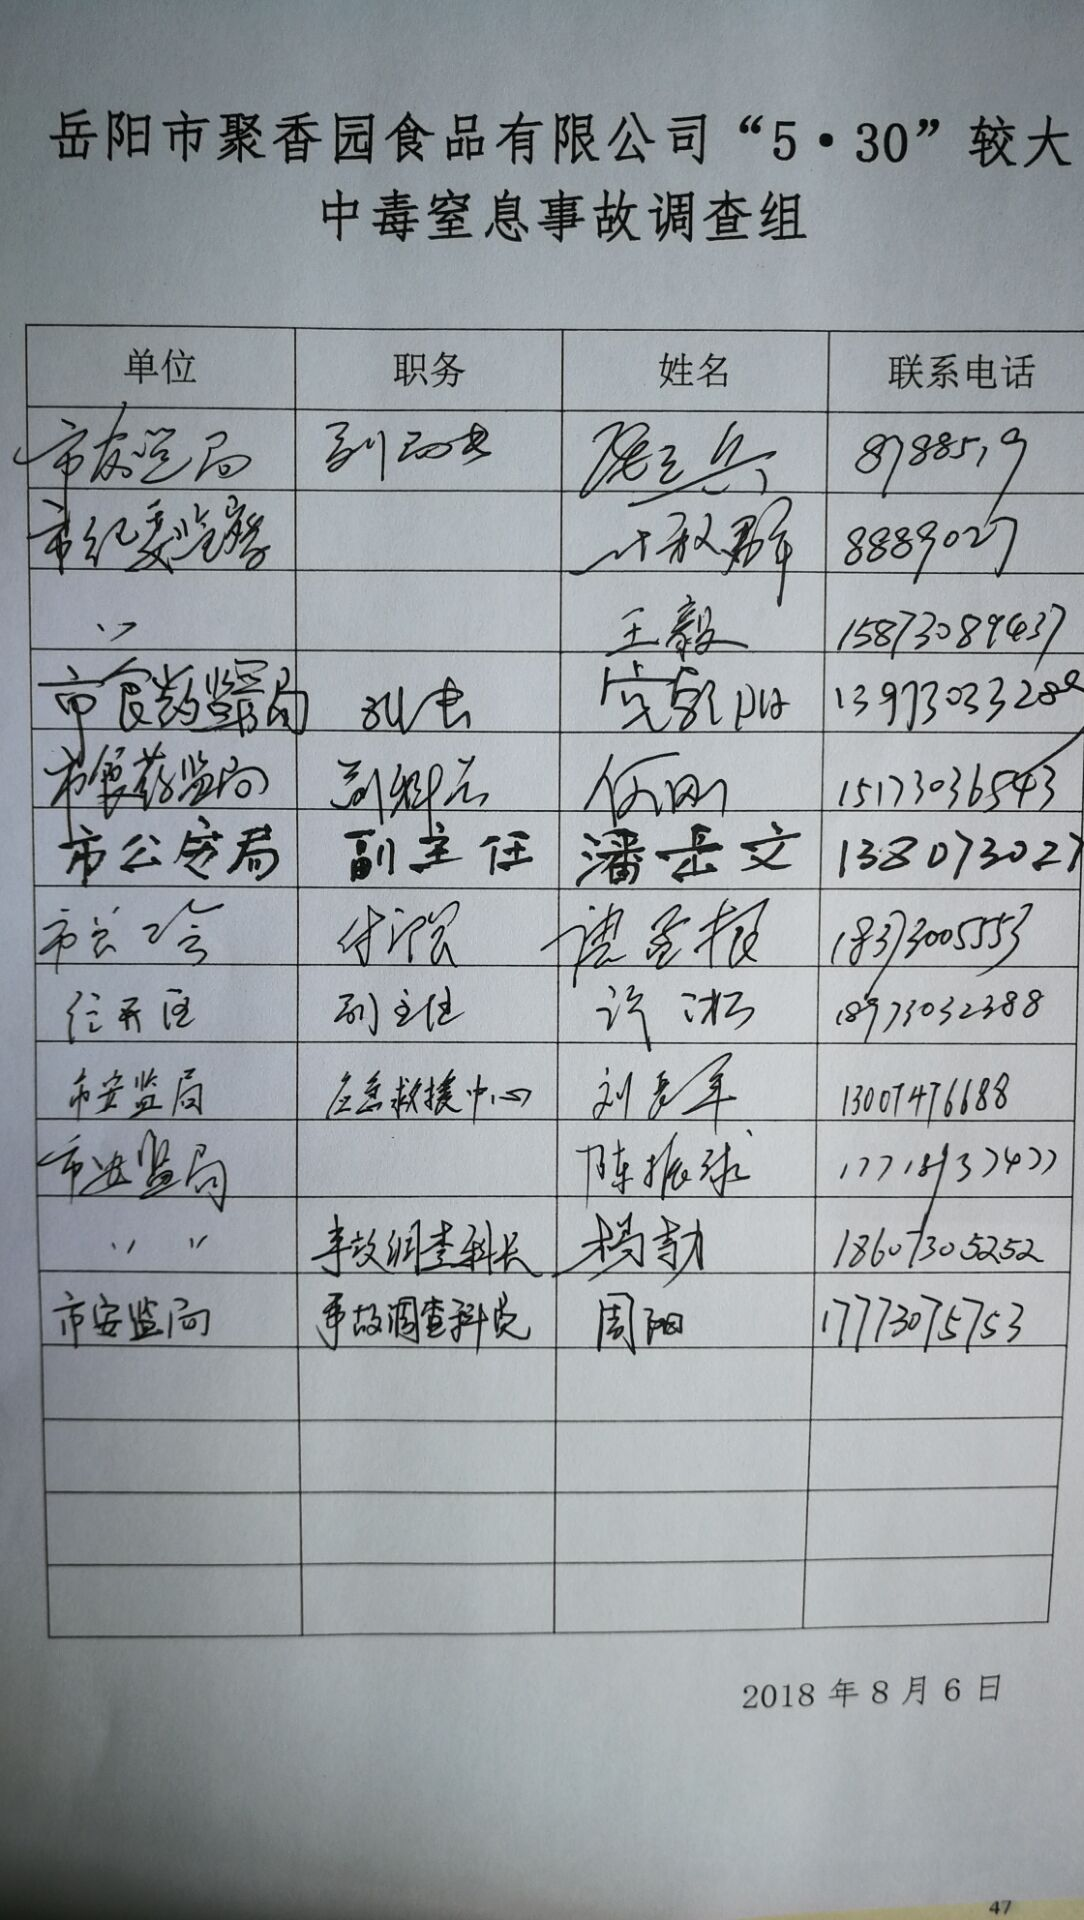 岳阳市聚香园食品有限公司“5·30”较大
中毒窒息事故调查组
单位 职务 姓名 联系电话
市安监局 副局长
市纪委监察 8889027
〃 王毅 15873089437
市食药监局
市食药监局 副科长 何刚 15173036543
市公安局 副主任 潘岳文 138073027
市总工会 18373005553
经开区 副主任 许 18973032388
市安监局 应急救援中心 刘长军 13007476688
市安监局 陈振球 17718937477
〃 〃 事故调查科长 杨勃 18607305252
市安监局 事故调查科员 周阳 17773075753
2018 年 8 月 6 日
47